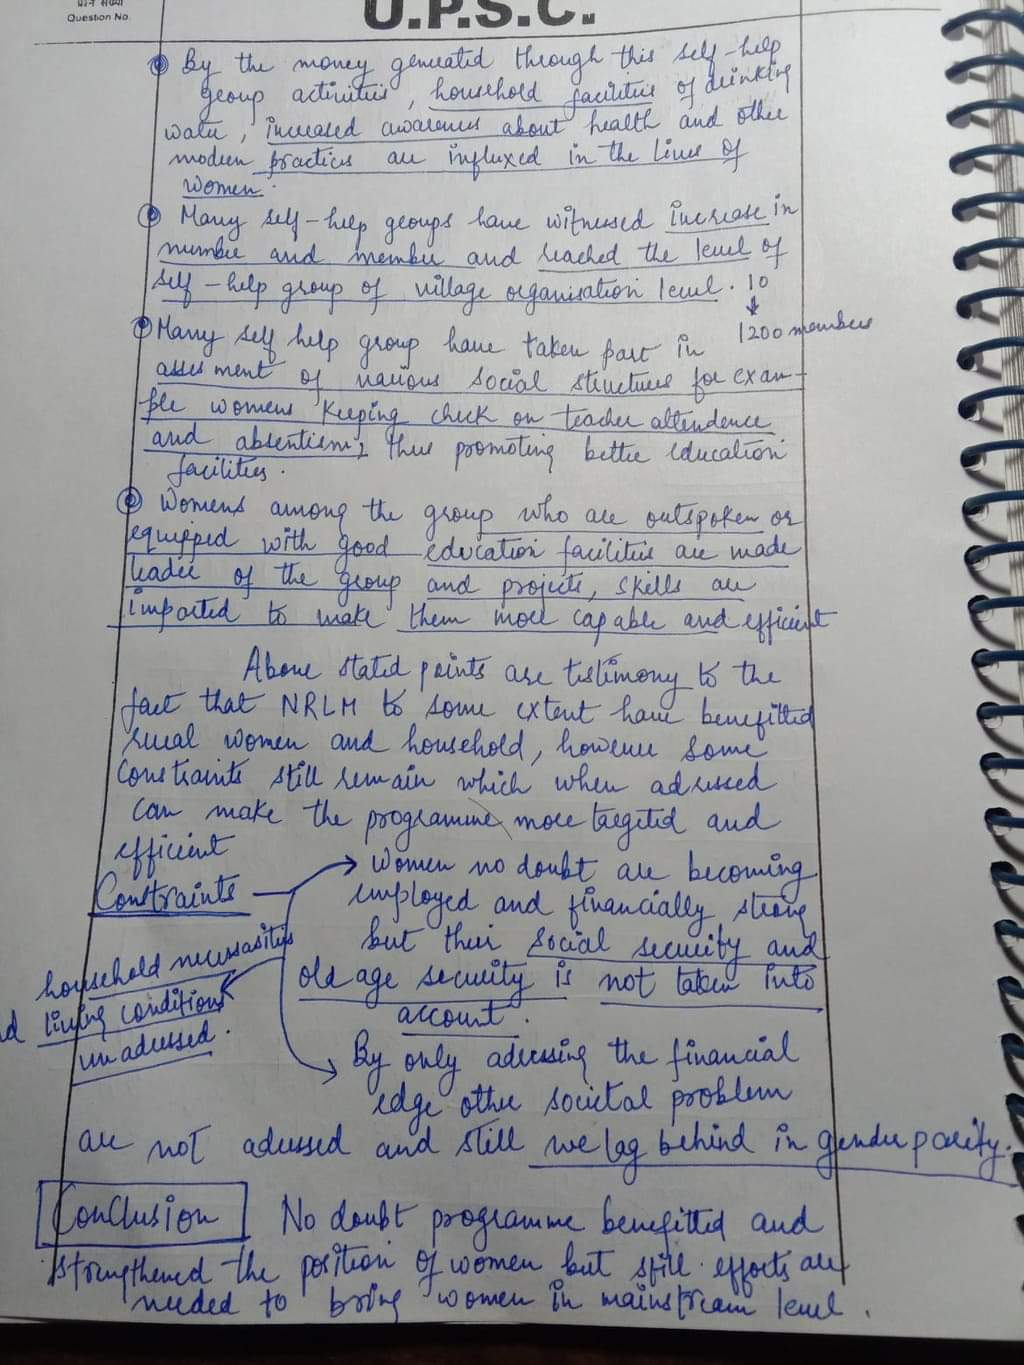 प्रश्न संख्या
Question No.
U.P.S.C.
By the money generated through this self-help
group activities, household facilities of drinking
water, increased awareness about health and other
modern practices are influxed in the lives of
women.
Many self-help groups have witnessed increase in
number and member and reached the level of
self-help group of village organisation level. 10
↓
1200 members
Many self help group have taken part in
assesment of various social structures for exam-
ple womens keeping check on teacher attendence
and absentism, thus promoting better education
facilities.
Womens among the group who are outspoken or
equipped with good education facilities are made
leader of the group and projects, skills are
imparted to make them more capable and efficient
Above stated points are testimony to the
fact that NRLM to some extent have benefitted
rural women and household, however some
constraints still remain which when adressed
can make the programme more targeted and
efficient
Constraints → Women no doubt are becoming
employed and financially strong
but their social security and
old age security is not taken into
account.
household necessasities
living condition
unadressed.
By only adressing the financial
edge other societal problem
are not adressed and still we lag behind in gender parity.
Conclusion No doubt programme benefitted and
strengthened the position of women but still efforts are
needed to bring women in mainstream level.